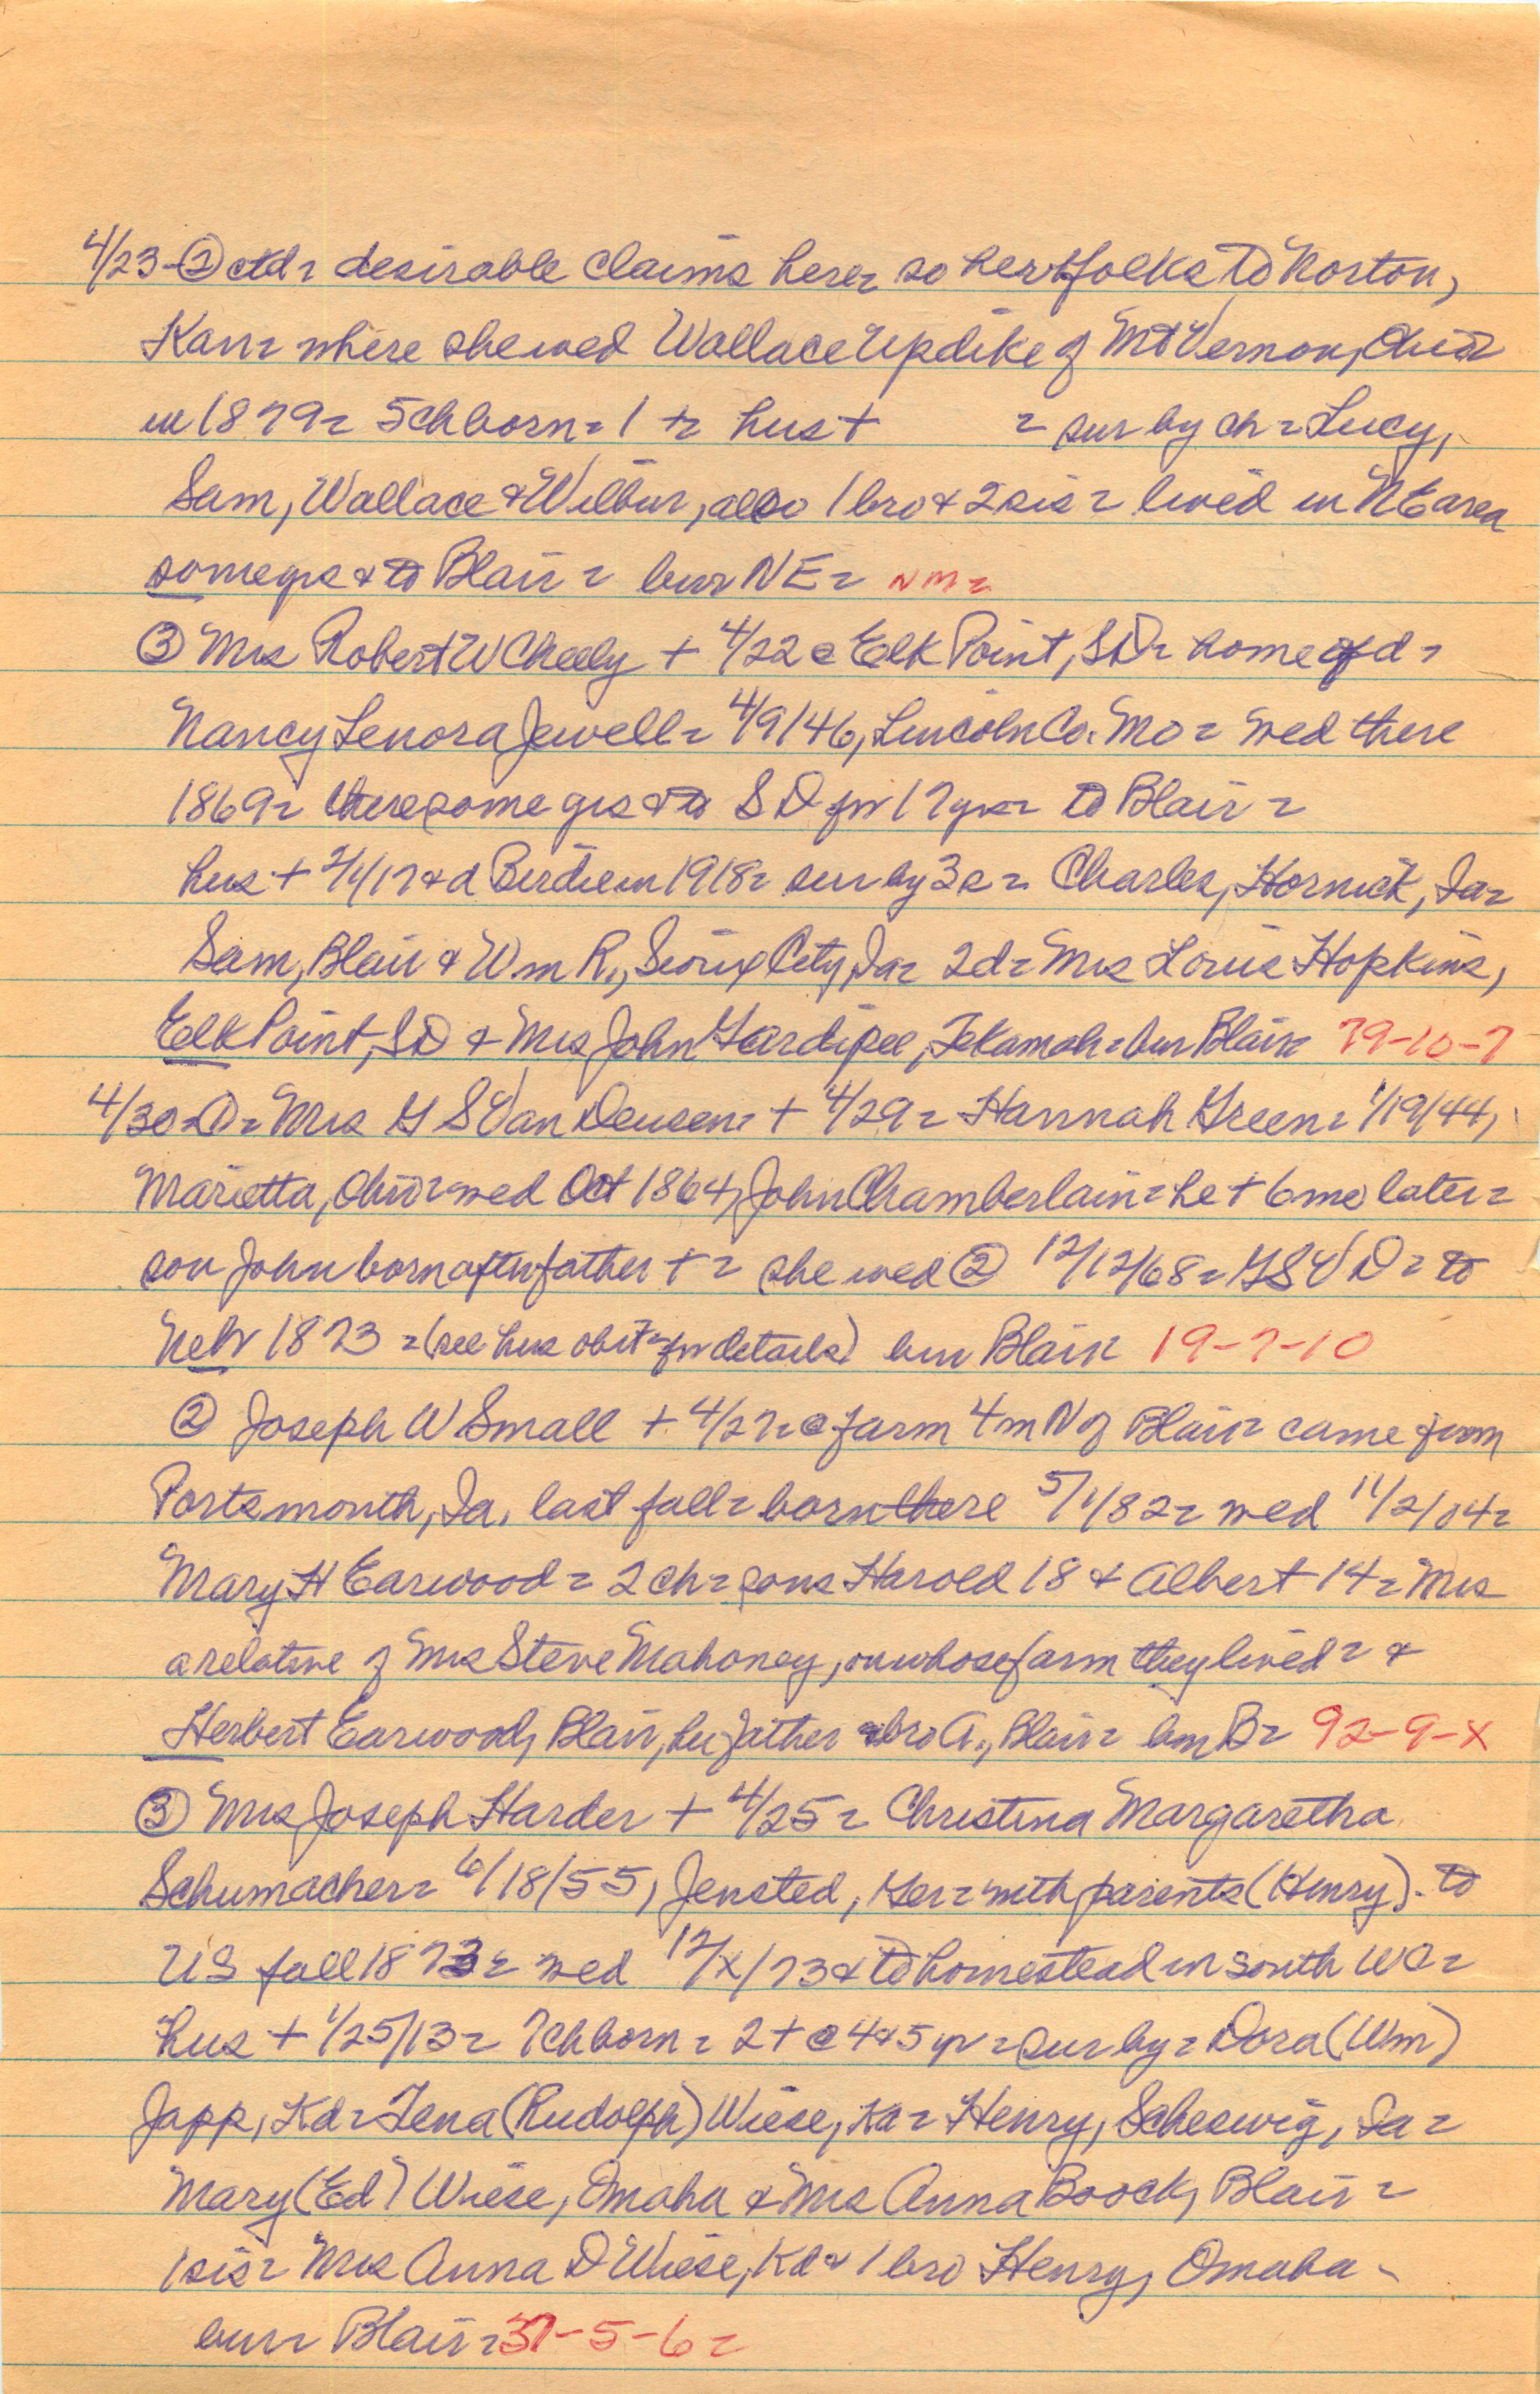 4/23-② ctd= desirable claims here= so her & folks to Norton,
Kan= where she wed Wallace Updike of Mt Vernon, Ohio
in 1879= 5 ch born= 1 += hus + = sur by ch= Lucy,
Sam, Wallace & Wilbur, also 1 bro & 2 sis= lived in NE area
some yrs & to Blair= bur NE= NM=
③ Mrs Robert W Cheely + 4/22 @ Elk Point, SD= home of d=
Nancy Lenora Jewell= 4/9/46, Lincoln Co. Mo= wed there
1869= there some yrs & to SD for 17 yrs= to Blair=
hus + 2/1/17 & d Birdie in 1918= sur by 3 s= Charles, Hornick, Ia=
Sam, Blair & Wm R., Sioux City, Ia= 2d= Mrs Louis Hopkins,
Elk Point, SD & Mrs John Gardipee, Tekamah= bur Blair= 79-10-7
4/30-①= Mrs G S Van Deusen= + 4/29= Hannah Green= 1/19/44,
Marietta, Ohio= wed Oct 1864, John Chamberlain= he + 6 mo later=
son John born after father += she wed ② 12/12/68= GSVD= to
Nebr 1873= (see hus obit for details) bur Blair 19-7-10
② Joseph W Small + 4/27= @ farm 4 m N of Blair= came from
Portsmouth, Ia, last fall= born there 5/1/82= wed 11/2/04=
Mary H Earwood= 2 ch= sons Harold 18 & Albert 14= Mrs
a relative of Mrs Steve Mahoney, on whose farm they lived= &
Herbert Earwood, Blair, her father & bro A., Blair= bur B= 92-9-X
③ Mrs Joseph Harder + 4/25= Christina Margaretha
Schumacher= 6/18/55, Jensted, Ger= with parents (Henry). to
US fall 1873= wed 12/X/73 & to homestead in south WC=
hus + 1/25/13= 7 ch born= 2 + @ 4 & 5 yr= sur by= Dora (Wm)
Japp, Kd= Tena (Rudolph) Wiese, Kd= Henry, Scheswig, Ia=
Mary (Ed) Wiese, Omaha & Mrs Anna Boock, Blair=
1 sis= Mrs Anna D Wiese, Kd & 1 bro Henry, Omaha-
bur= Blair= 37-5-6=